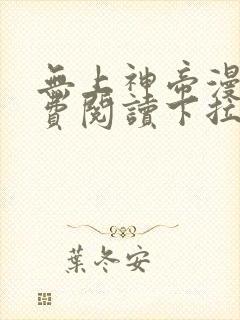 無上神帝漫
費閱讀下拉
葉冬安